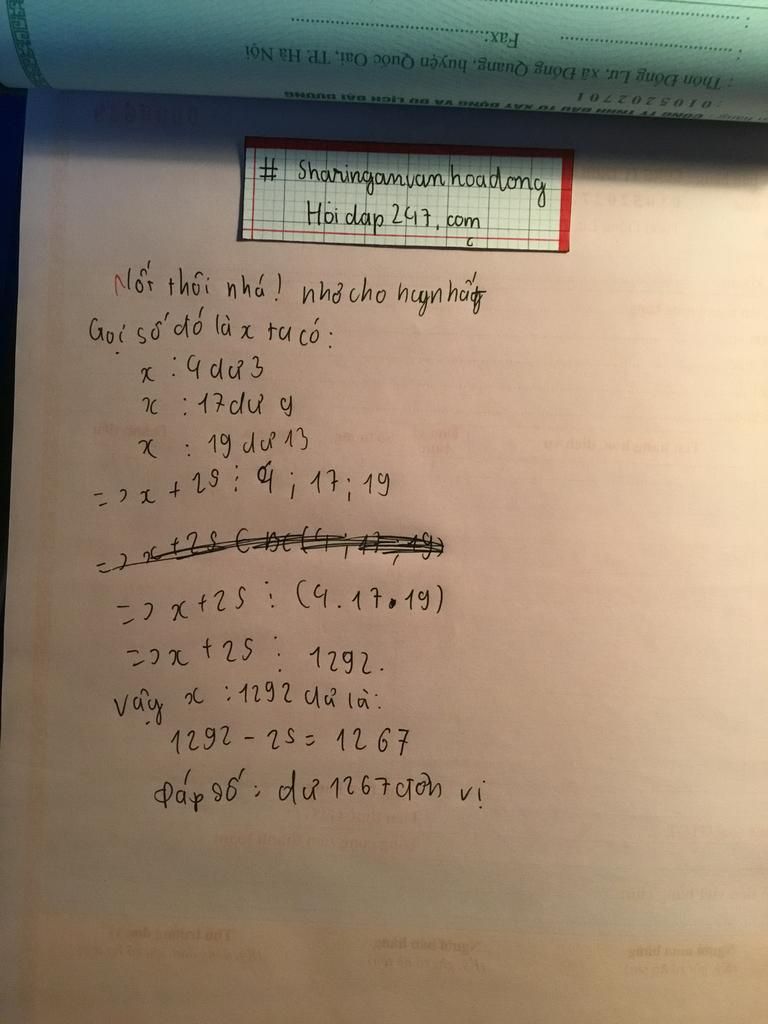 : Thôn Đồng Lư, xã Đồng Quang, huyện Quốc Oai, TP. Hà Nội
Fax:
0105202701
# Sharinganvanhoadong
Hỏi dap 247.com
Nốt thôi nhá! nhớ cho hay nhất
Gọi số đó là x ta có:
x : 4 dư 3
x : 17 dư 9
x : 19 dư 13
=> x + 25 ⋮ 4 ; 17 ; 19
=> x + 25 ⋮ (4.17.19)
=> x + 25 ⋮ 1292.
Vậy x : 1292 dư là:
1292 - 25 = 1267
Đáp số : dư 1267 đơn vị